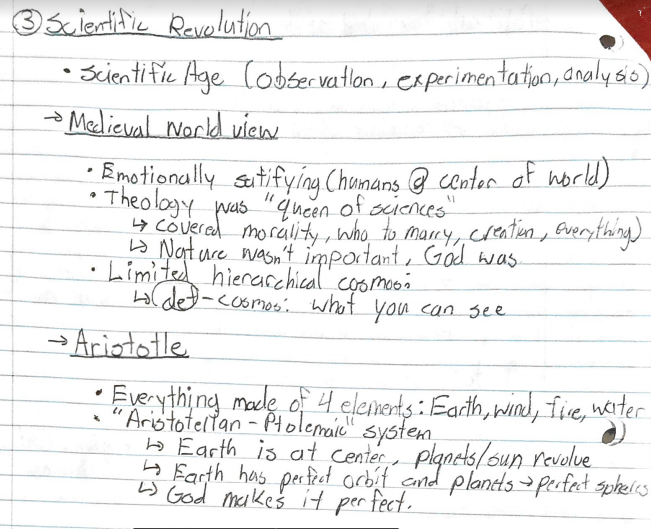 ③ Scientific Revolution
• Scientific Age (observation, experimentation, analysis)
→ Medieval World view
• Emotionally satifying (humans @ center of world)
• Theology was "queen of sciences"
↳ covered morality, who to marry, creation, everything)
↳ Nature wasn't important, God was
• Limited hierarchical cosmos:
↳ def - cosmos: what you can see
→ Aristotle
• Everything made of 4 elements: Earth, wind, fire, water
• "Aristotelian - Ptolemaic" system
↳ Earth is at center, planets/sun revolve
↳ Earth has perfect orbit and planets → perfect spheres
↳ God makes it perfect.